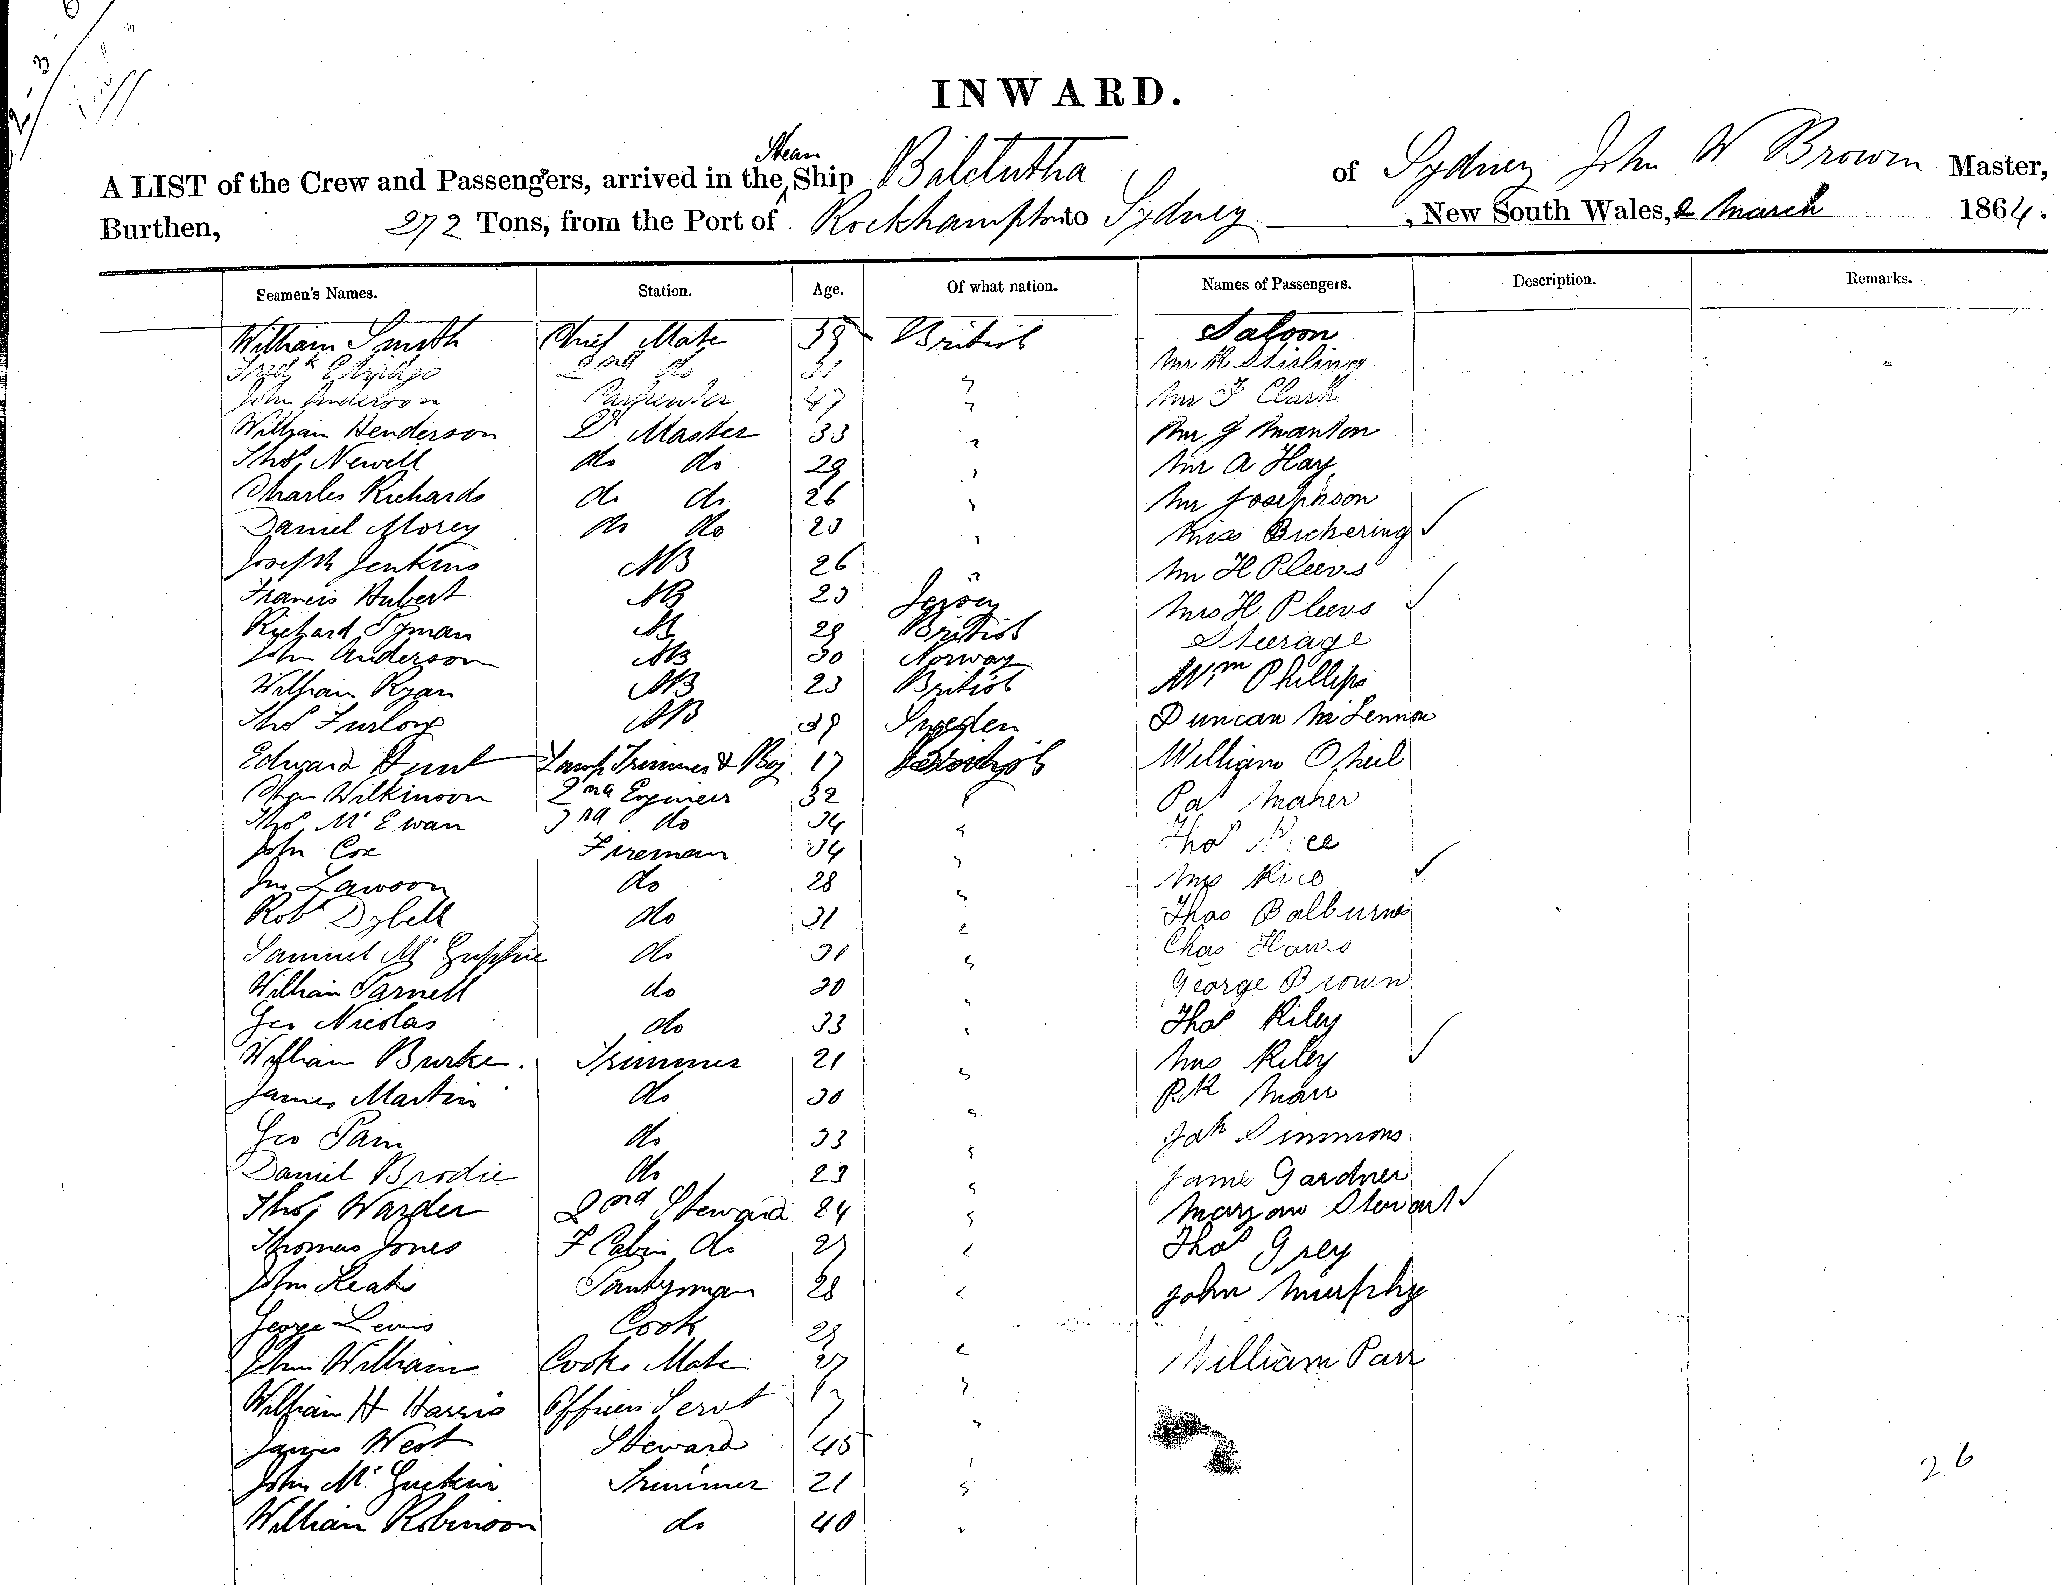 INWARD.
A LIST of the Crew and Passengers, arrived in the Steam Ship Balclutha of Sydney John W Brown Master,
Burthen, 272 Tons, from the Port of Rockhampton to Sydney, New South Wales, 2 March 1864.
Seamen's Names. Station. Age. Of what nation. Names of Passengers. Description. Remarks.
William Smith Chief Mate 39 British Saloon
2nd do 31 " Mr R Stirling
John Anderson Carpenter 47 " Mr F Clark
William Henderson Qr Master 33 " Mr J Manton
Thos Newell do do 29 " Mr A Hay
Charles Richards do do 26 " Mr Josephson
Daniel Morey do do 23 " Miss Bickering
Joseph Jenkins AB 26 " Mr H Pleevs
Francis Hubert AB 23 Jersey Mrs H Pleevs
Richard Pyman AB 29 British Steerage
John Anderson AB 30 Norway Wm Phillips
William Ryan AB 23 British Duncan McLennon
Thos Furlong AB 39 Sweden
Edward Hunt Lamp Trimmer & Boy 17 British William Oneil
Wilkinson 2nd Engineer 32 " Pat Maher
Thos McEwan 3rd do 34 " Thos Rice
John Cox Fireman 34 "
Jno Lawson do 28 " Mrs Rice
Robt Dybell do 31 " Thos Balburnes
Samuel Mc Guffie do 31 " Chas Haws
William Parnell do 30 " George Brown
Geo Nicolas do 33 " Thos Riley
William Burke. Trimmer 21 " Mrs Riley
James Martin do 30 " Pk Marr
Geo Pain do 33 " Jas Simmons
Daniel Brodie do 23 " Jame Gardner
Thos Warder 2nd Steward 24 " Margan Stewart
Thomas Jones F Cabin do 27 " Thos Grey
John Keats Pantryman 28 " John Murphy
George Lewis Cook 29
John William Cooks Mate 27 " William Parr
William H Harris Officers Servt 17 "
James West Steward 45 "
John Mc Guckin Trimmer 21 "
William Robinson do 40 "
26